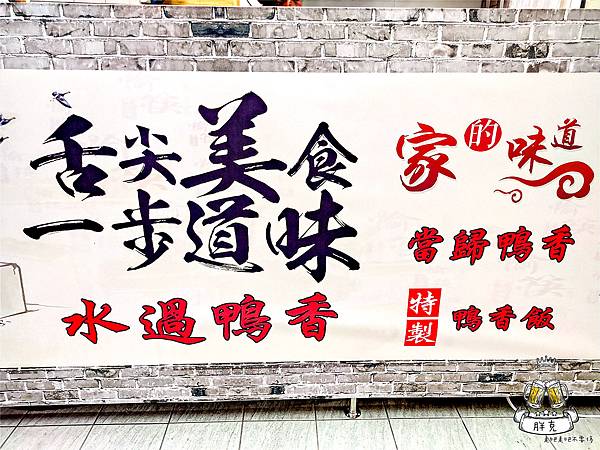 舌尖美食
一步道味
水過鴨香
家的味道
當歸鴨香
特製
鴨香飯
胖克